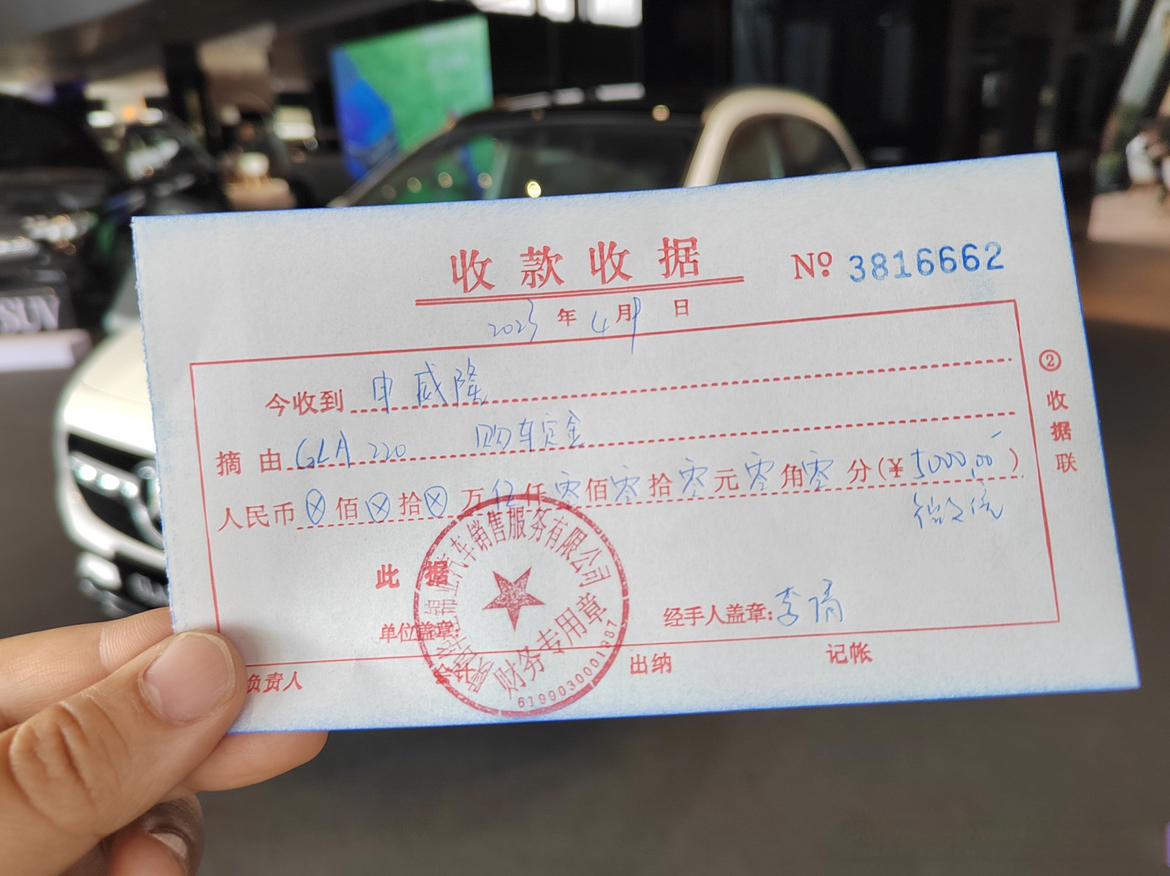 收款收据
№ 3816662
2023年4月9日
今收到 申威隆
摘由 GLA 220 购车定金
人民币 ⊗ 佰 ⊗ 拾 ⊗ 万 伍 仟 零 佰 零 拾 零 元 零 角 零 分(¥ 5000.00)
微信
此据
单位盖章:
经手人盖章: 李倩
负责人
出纳
记帐
② 收据联
汽车销售服务有限公司
财务专用章
6199030001887
SUV